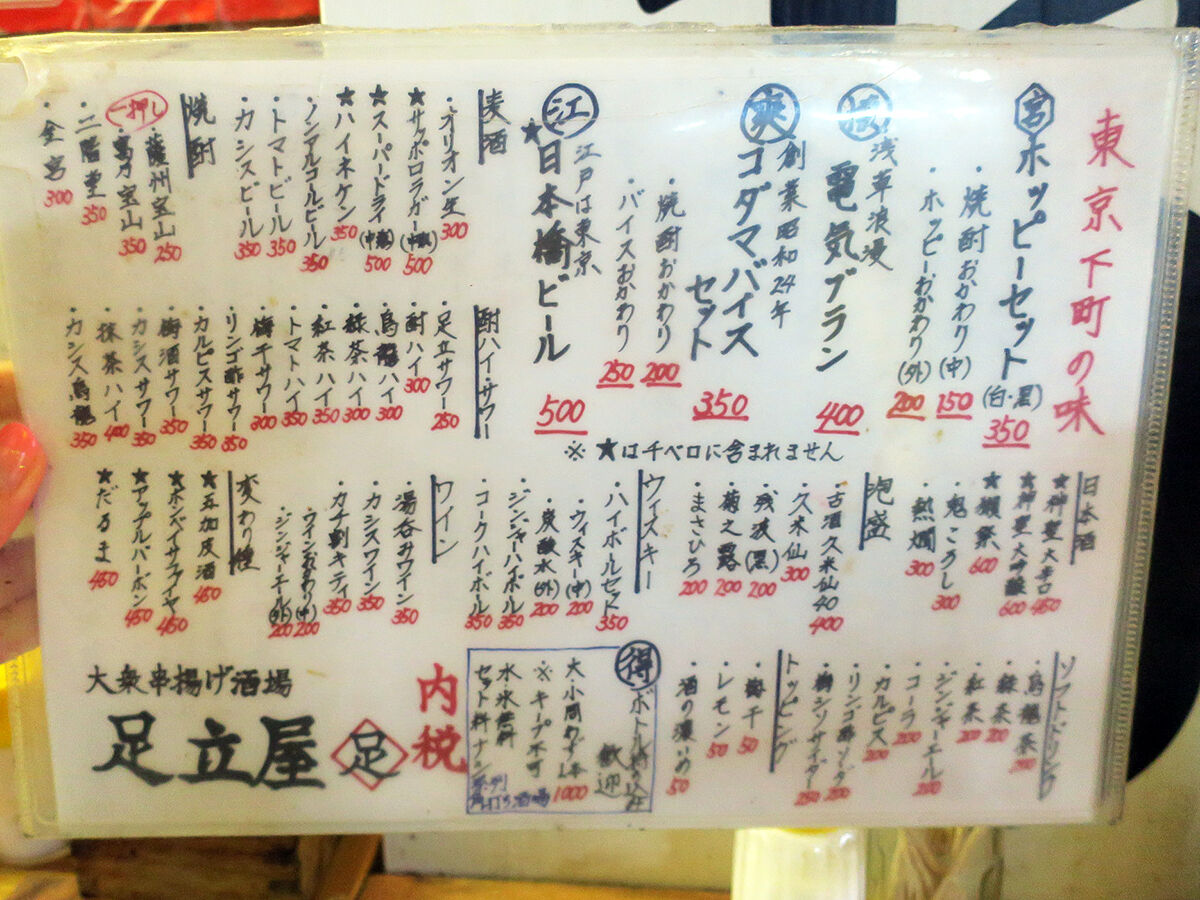 東京下町の味
宮 ホッピーセット(白・黒) 350
・焼酎おかわり(中) 150
・ホッピーおかわり(外) 200
浅草浪漫
電気ブラン 400
爽 創業昭和24年
コダマバイス
セット 350
・焼酎おかわり 200
・バイスおかわり 250
江 江戸は東京
★日本橋ビール 500
※★はチベロに含まれません
麦酒
・オリオン生 300
★サッポロラガー(中瓶) 500
★スーパードライ(中瓶) 500
★ハイネケン 350
・ノンアルコールビール 350
・トマトビール 350
・カシスビール 350
焼酎
・薩州宝山 250
一押し
・富乃宝山 350
・二階堂 350
・金宮 300
酎ハイ・サワー
・足立サワー 250
・酎ハイ 300
・烏龍ハイ 300
・緑茶ハイ 300
・紅茶ハイ 350
・トマトハイ 350
・梅干サワー 300
・リンゴ酢サワー 350
・カルピスサワー 350
・梅酒サワー 350
・カシスサワー 350
・抹茶ハイ 400
・カシス烏龍 350
日本酒
★神聖大辛口 450
★神聖大吟醸 600
★獺祭 600
・鬼ころし 300
・熱燗 300
泡盛
・古酒久米仙40 400
・久米仙 300
・残波(黒) 200
・菊之露 200
・まさひろ 200
ウィスキー
・ハイボールセット 350
・ウィスキー(中) 200
・炭酸水(外) 200
・ジンジャーハイボール 350
・コークハイボール 350
ワイン
・湯呑みワイン 350
・カシスワイン 350
・カチ割キティ 350
・ワインおかわり(中) 200
・ジンジャーエール(外) 200
変わり種
★五加皮酒 450
★ボンベイサファイヤ 450
★アップルバーボン 450
★だるま 450
ソフトドリンク
・烏龍茶 200
・緑茶 200
・紅茶 200
・ジンジャーエール 200
・コーラ 200
・カルピス 200
・リンゴ酢ソーダ 200
・梅シソサイダー 250
トッピング
・梅干 50
・レモン 50
・酒の濃いめ 50
得 ボトル持ち込み
歓迎
大小問わず1本 1000
※キープ不可
水氷無料
セット料ナシ
内税
大衆串揚げ酒場
足立屋 足